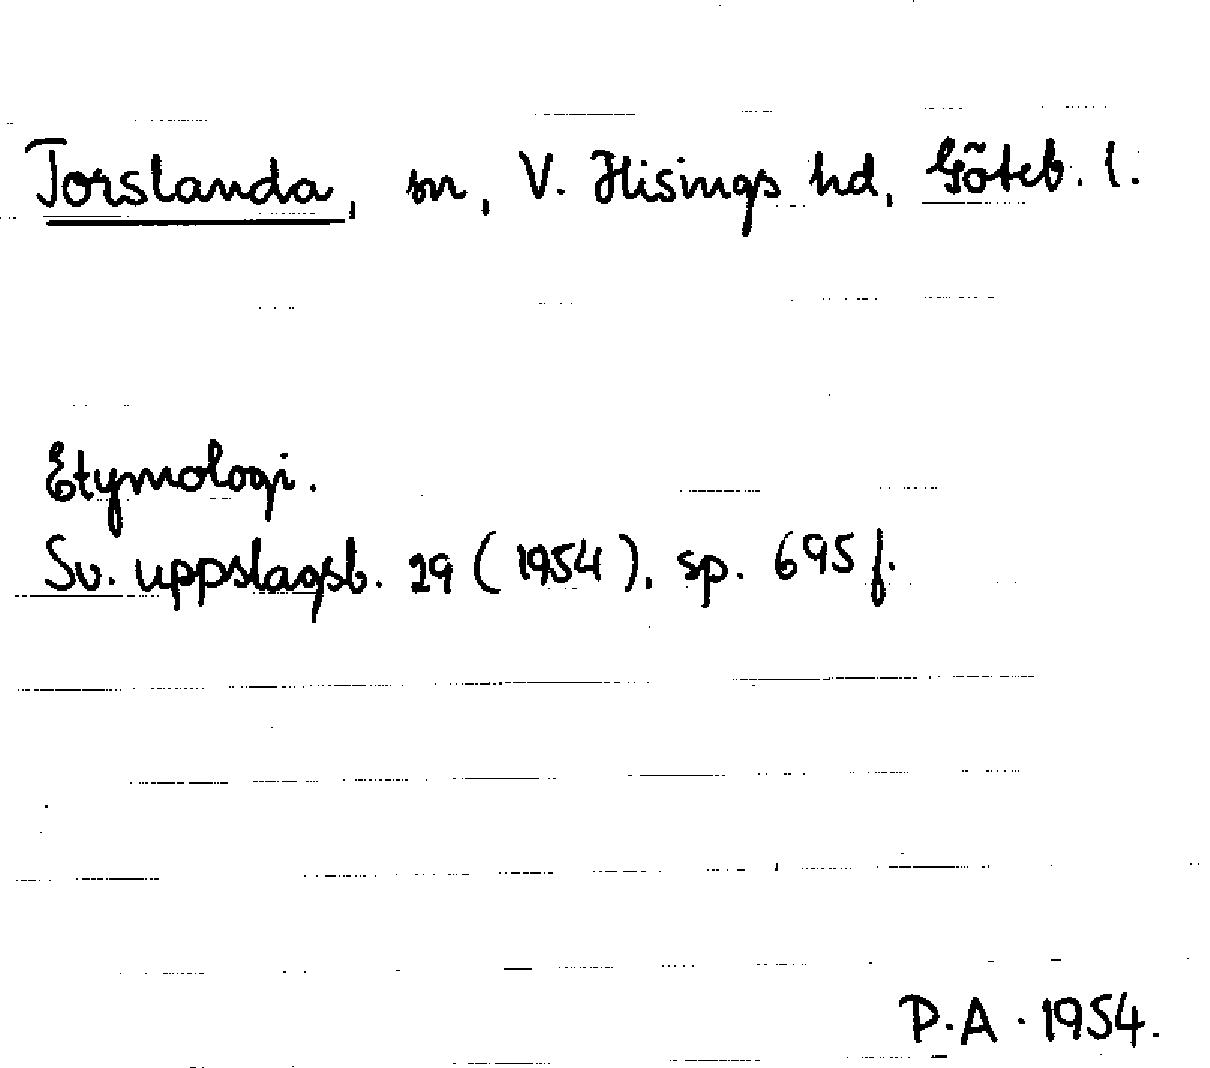 Torslanda, sn, V. Hisings hd, Göteb. l.
Etymologi.
Sv. uppslagsb. 29 (1954), sp. 695 f.
P.A. 1954.